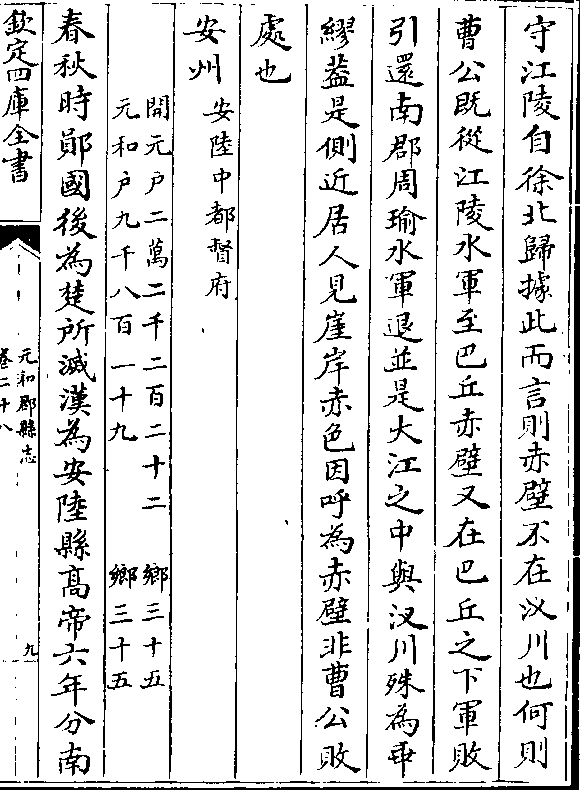 守江陵自徐北歸據此而言則赤壁不在汊川也何則
曹公既從江陵水軍至巴丘赤壁又在巴丘之下軍敗
引還南郡周瑜水軍退並是大江之中與汊川殊為乖
繆葢是側近居人見崖岸赤色因呼為赤壁非曹公敗
處也
安州
安陸中都督府
開元户二萬二千二百二十二 鄉三十五
元和户九千八百一十九 鄉三十五
春秋時鄖國後為楚所滅漢為安陸縣高帝六年分南
欽定四庫全書
元和郡縣志
卷二十八
九